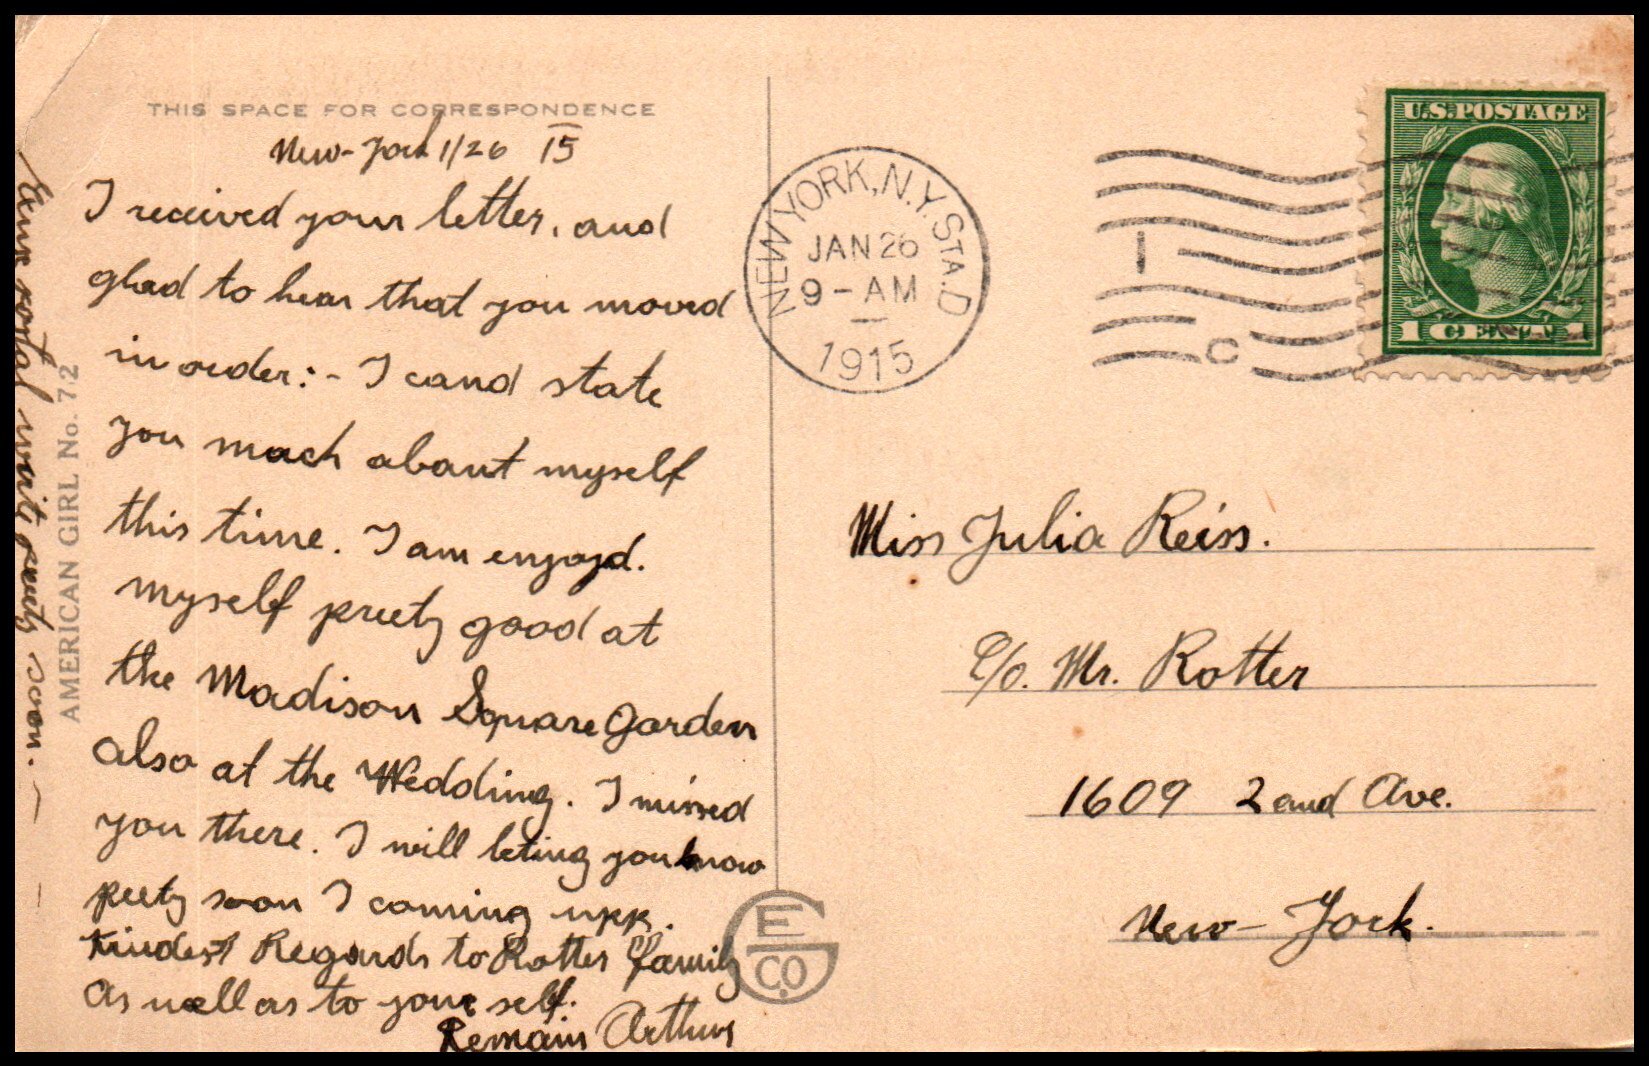 THIS SPACE FOR CORRESPONDENCE
New-York 1/26 15
I received your letter, and
glad to hear that you moved
in order:- I cand state
you mach abaut myself
this time. I am enjoyd.
myself preety good at
the Madison Square Garden
also at the Wedding. I missed
you there. I will leting you know
peety soon I coming upp.
Kindest Regards to Rotter family
as well as to your self.
Remain Arthur
postal write preety soon.
AMERICAN GIRL No. 72
NEW YORK, N.Y. STA. D
JAN 26
9-AM
1915
1
C
U.S. POSTAGE
1 CENT 1
Miss Julia Reiss.
C/o. Mr. Rotter
1609 2and Ave.
New-York.
E
G
CO.